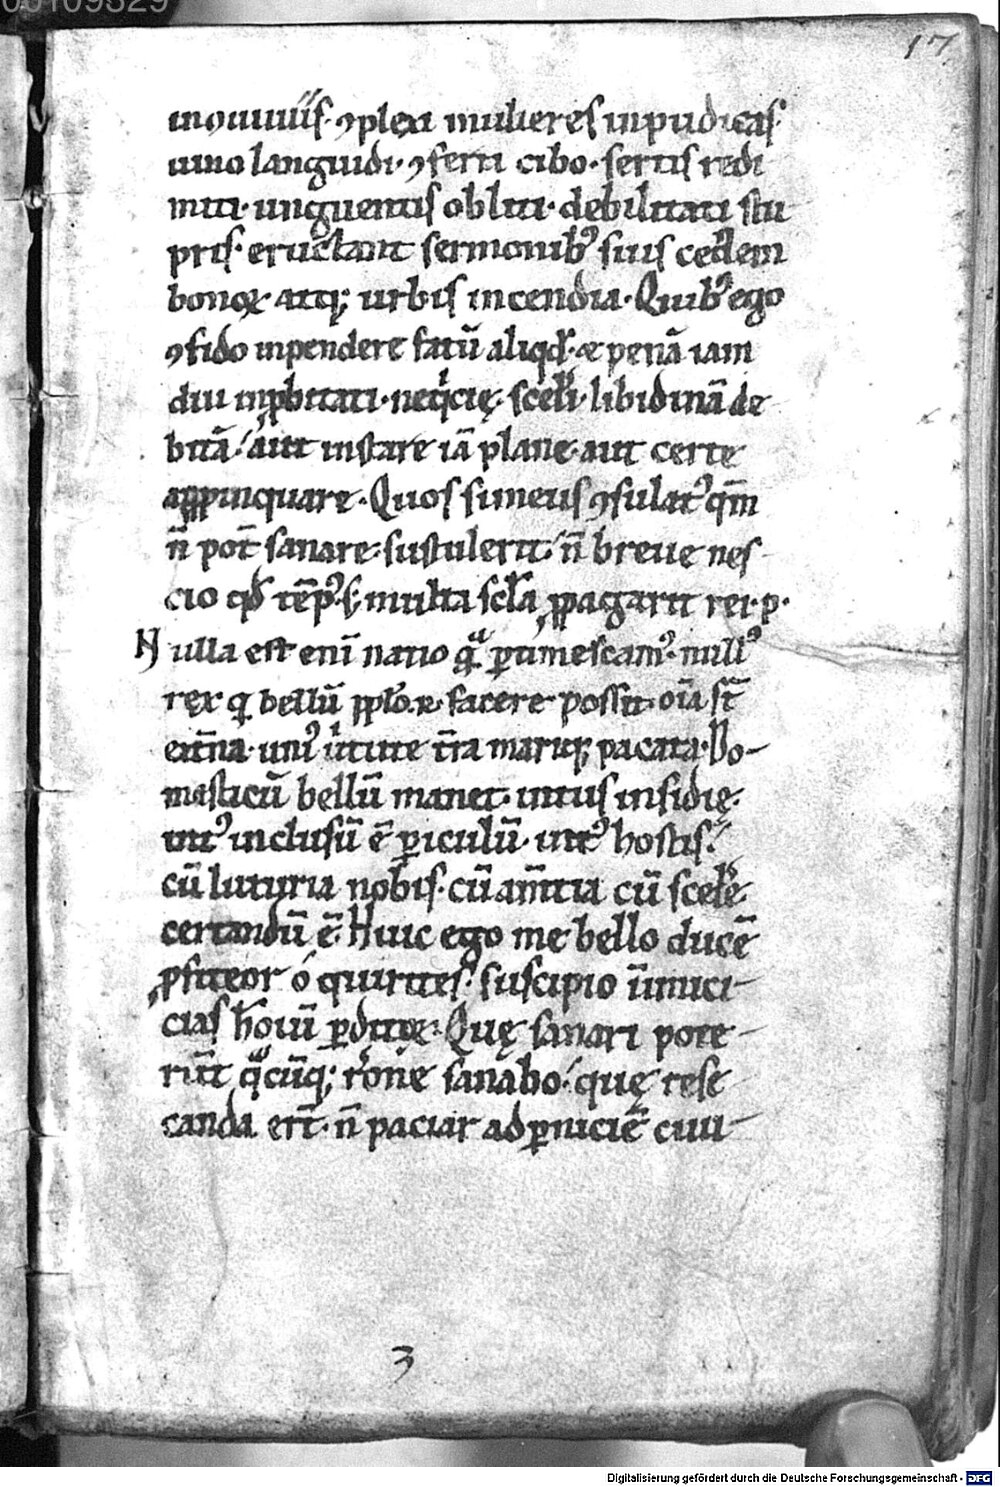 00109329
17
in ꝯuiuiis· ꝯplexi mulieres inpudicas·
uino languidi· ꝯferti cibo· sertis redi
miti· unguentis obliti· debilitati stu
pris· eructant sermonibꝰ suis cedem
bonoꝝ atqꝫ urbis incendia· Quibꝰ ego
ꝯfido inpendere fatū aliqd̕· & penā iam
diu inꝓbitati· neqͥcię· scelˀi· libidinā de
bitā· aut instare iā plane· aut certe
aꝓpinquare· Quos si meus ꝯsulatꝰ qm̄
n̄ pot̄ sanare· sustulerit· n̄ breue nes
cio qd̕ tēpꝰ· sꝫ multa scl̄a ꝓpagarit rei·p·
Nulla est eni natio qͣ ꝑtimescamꝰ· nullꝰ
rex q bellū pplo·R· facere possit· oīa st̄
ext̄na· uniꝰ uͥtute t̄ra mariqꝫ pacata· Do-
masticū bellū manet· intus insidię·
intꝰ inclusū ē ꝑiculū· intꝰ hostis·
cū luxuria nobis· cū am̄tia cū scelˀe
certandū ē· Huic ego me bello ducē
ꝓfiteor ó quirites· suscipio inimici
cias hoīū ꝑditoꝝ· Quę sanari pote
rūt qͣcūqꝫ rōne sanabo· quę rese
canda er̄t· n̄ paciar ad ꝑniciē ciui
3
Digitalisierung gefördert durch die Deutsche Forschungsgemeinschaft - DFG